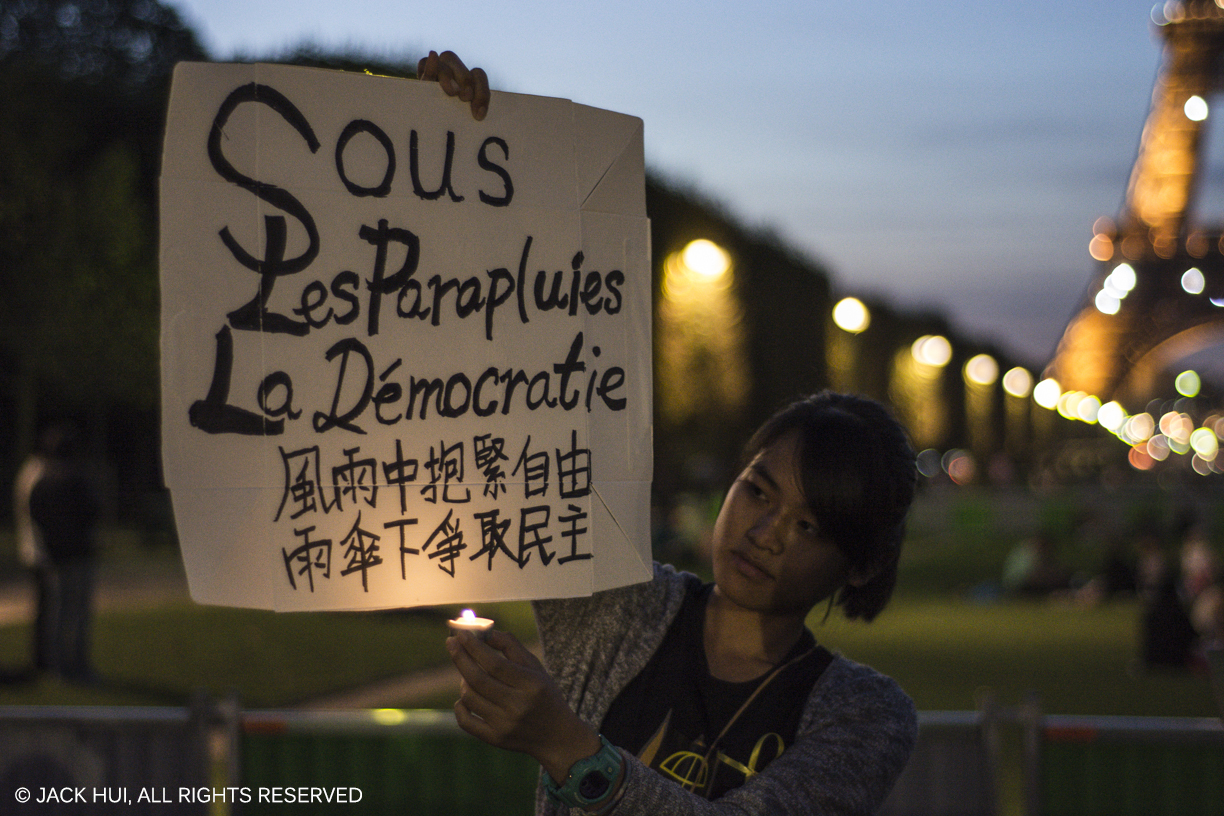 Sous
Les Parapluies
La Démocratie
風雨中抱緊自由
雨傘下爭取民主
© JACK HUI, ALL RIGHTS RESERVED